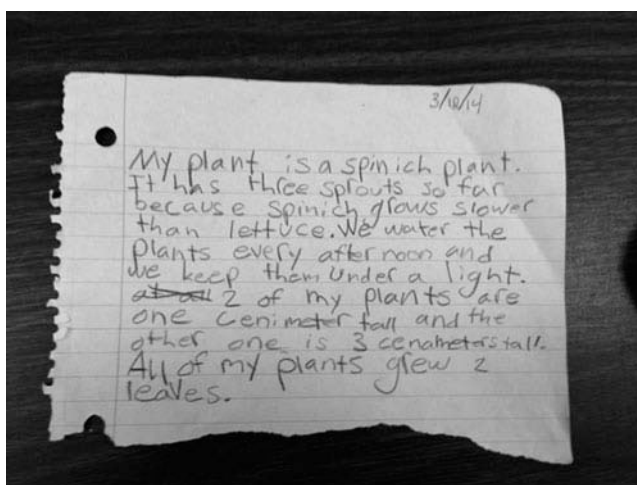 3/18/14
My plant is a spinich plant.
It has three sprouts so far
because spinich grows slower
than lettuce. We water the
plants every afternoon and
we keep them under a light.
2 of my plants are
one cenimeter tall and the
other one is 3 cenameters tall.
All of my plants grew 2
leaves.